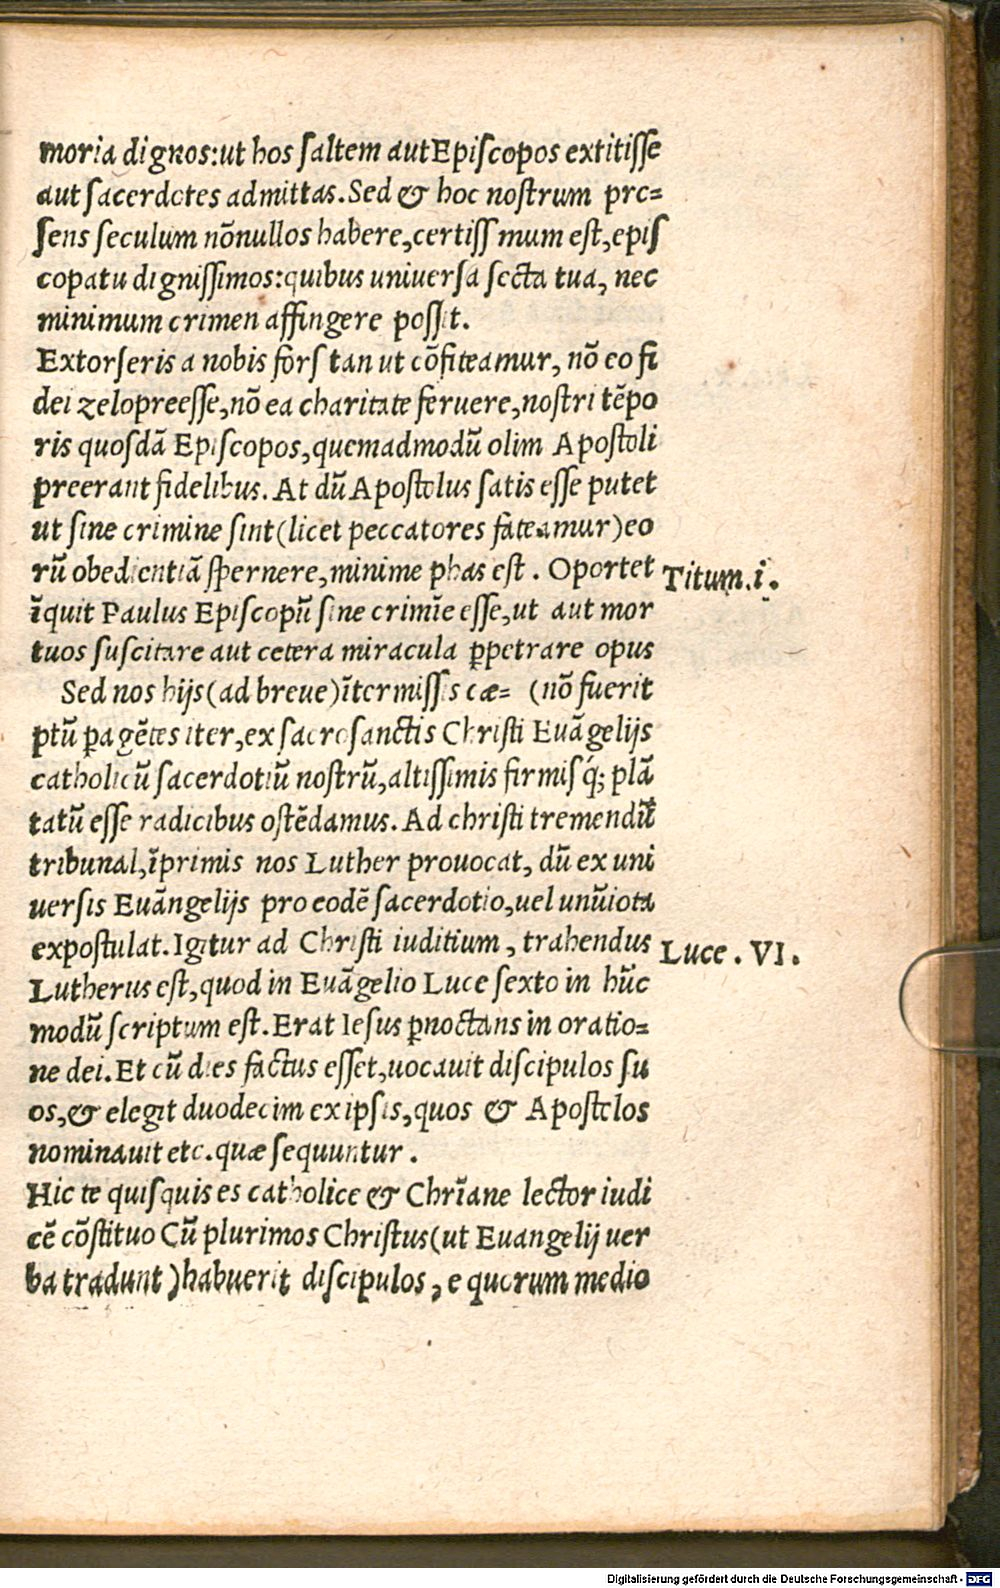 moria dignos:ut hos saltem aut Episcopos extitisse
aut sacerdotes admittas. Sed & hoc nostrum pre-
sens seculum nõnullos habere, certiss mum est, epis
copatu dignissimos: quibus universa secta tua, nec
minimum crimen affingere possit.
Extorseris a nobis fors tan ut cõfiteamur, nõ eo fi
dei zelo preesse, nõ ea charitate feruere, nostri tẽpo
ris quosdã Episcopos, quemadmodũ olim Apostoli
preerant fidelibus. At dũ Apostolus satis esse putet
ut sine crimine sint (licet peccatores fateamur) eo
rũ obedientiã spernere, minime phas est. Oportet
Titum.i.
ĩquit Paulus Episcopũ sine crimĩe esse, ut aut mor
tuos suscitare aut cetera miracula ꝑpetrare opus
Sed nos hijs (ad breue) ĩtermissis cæ- (nõ fuerit
ptũ ꝑagẽtes iter, ex sacrosanctis Christi Euãgelijs
catholicũ sacerdotiũ nostrũ, altissimis firmisq́; plã
tatũ esse radicibus ostẽdamus. Ad christi tremendũ
tribunal, ĩprimis nos Luther prouocat, dũ ex uni
uersis Euãngelijs pro eodẽ sacerdotio, uel unũ iota
expostulat. Igitur ad Christi iuditium, trahendus
Luce. VI.
Lutherus est, quod in Euãgelio Luce sexto in hũc
modũ scriptum est. Erat Iesus ꝑnoctans in oratio-
ne dei. Et cũ dies factus esset, uocauit discipulos su
os, & elegit duodecim ex ipsis, quos & Apostolos
nominauit etc. quæ sequuntur.
Hic te quisquis es catholice & Chrĩane lector iudi
cẽ cõstituo Cũ plurimos Christus (ut Euangelij uer
ba tradunt) habuerit discipulos, e quorum medio
Digitalisierung gefördert durch die Deutsche Forschungsgemeinschaft - DFG